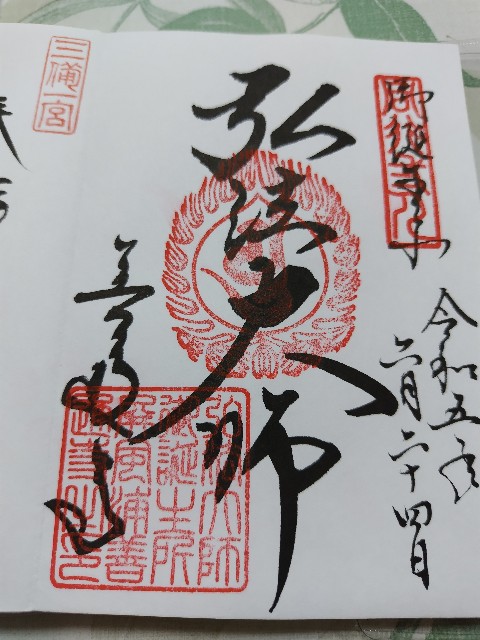 御誕生所
令和五年
六月二十四日
弘法大師
善通寺
弘法大師
御誕生所
屏風浦善
通寺之印
三備一宮